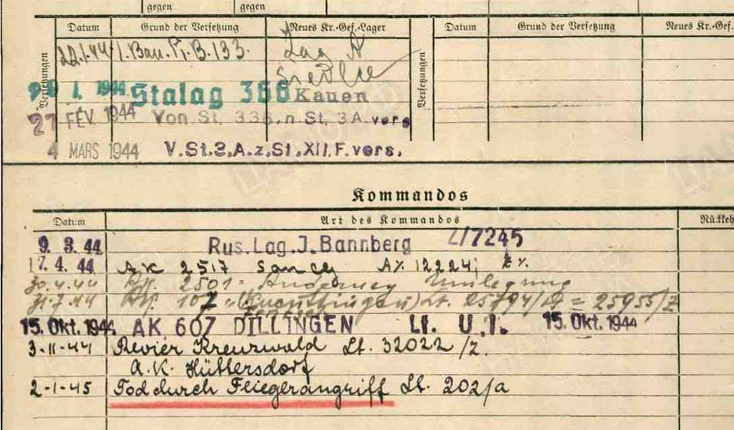 gegen gegen
Datum Grund der Versetzung Neues Kr.-Gef.-Lager Datum Grund der Versetzung Neues Kr.-Gef.
Versetzungen Versetzungen
22.1.44 1. Bau. Pi. B. 133.
Siedlce
1 1944 Stalag 366 Kauen
27 FÉV 1944 Von. St. 336. n. St. 3A. vers
4 MARS 1944 V. St. 3. A. z. St. XII. F. vers.
Kommandos
Datum Art des Kommandos Rückkeh
9. 3. 44 Rus. Lag. J. Bannberg L/7245
17. 4. 44 AK 2517 Sancy 12224
30.4.44 2501
31.7.44 107 Lt. 25794/ = 25955/Z
15. Okt. 1944 AK 607 DILLINGEN Lt. U. I. 15. Okt. 1944
3-11-44 Revier Kreuzwald Lt. 32022/Z
A.K. Hüttersdorf
2-1-45 Tod durch Fliegerangriff Lt. 202/a